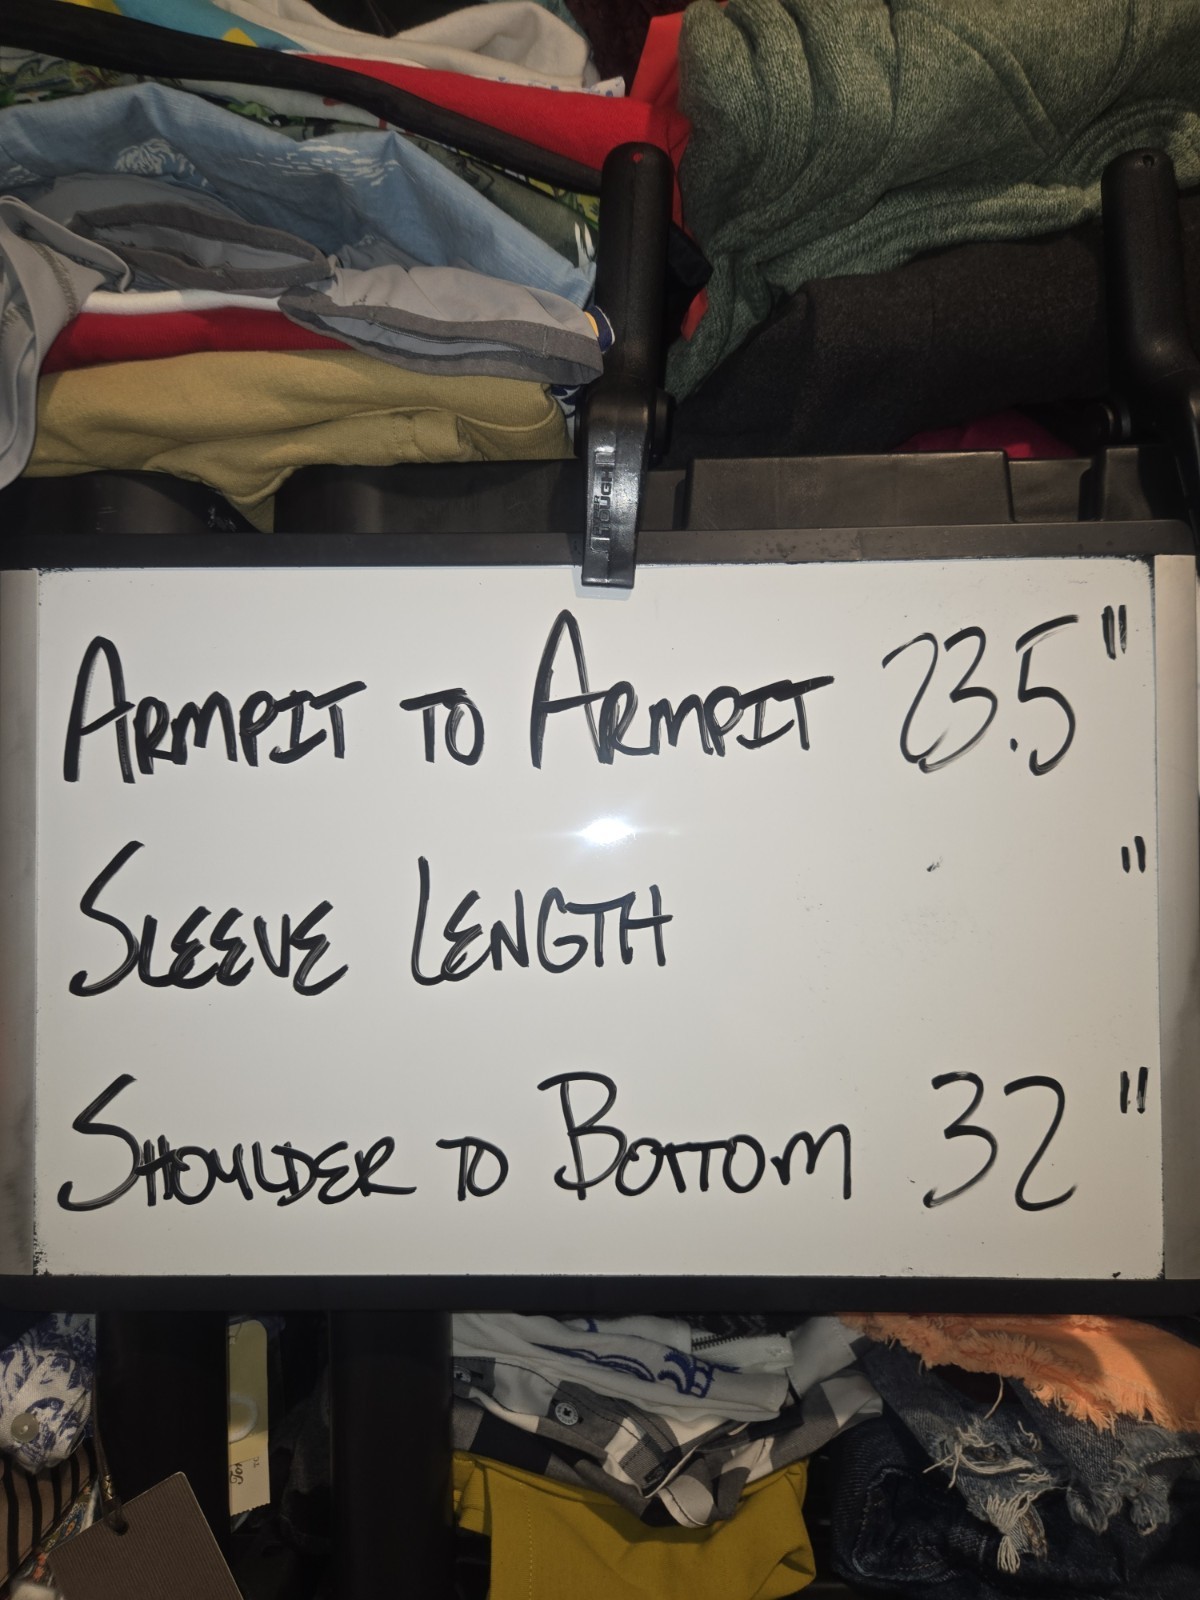 TOUGH
ARMPIT TO ARMPIT 23.5"
SLEEVE LENGTH "
SHOULDER TO BOTTOM 32"